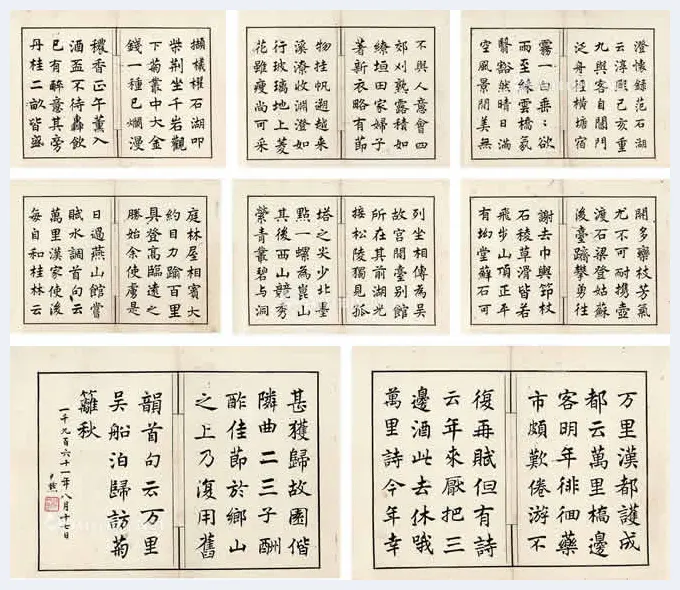 澄懷錄范石湖
云淳熙己亥重
九與客自閶門
泛舟徑橫塘宿
霧一白垂〻欲
雨至綠雲橋氛
翳豁然晴日滿
空風景閒美無
不與人意會四
郊刈熟露積如
繚垣田家婦子
著新衣略有節
物挂帆遡越來
溪潦收淵澄如
行玻璃地上菱
花雖瘦尚可采
擷檥櫂石湖叩
柴荊坐千岩觀
下菊叢中大金
錢一種已爛漫
穠香正午薰入
酒盃不待轟飲
已有醉意其旁
丹桂二畝皆盛
開多欒枝芳氣
尤不可耐攜壺
渡石梁登姑蘇
後臺躋攀勇往
謝去巾輿筇杖
石稜草滑皆若
飛步山頂正平
有坳堂蘚石可
列坐相傳為吳
故宮閒臺別館
所在其前湖光
接松陵獨見孤
塔之尖少北墨
點一螺為崑山
其後西山競秀
縈青叢碧与洞
庭林屋相賓大
約目力踰百里
具登高臨遠之
勝始余使虜是
日過燕山館嘗
賦水調首句云
萬里漢家使後
每自和桂林云
万里漢都護成
都云萬里橋邊
客明年徘徊藥
市頗歎倦游不
復再賦但有詩
云年來厭把三
邊酒此去休哦
萬里詩今年幸
甚獲歸故園偕
隣曲二三子酬
酢佳節於鄉山
之上乃復用舊
韻首句云万里
吳船泊歸訪菊
籬秋
一千九百六十一年八月十七日
尹默